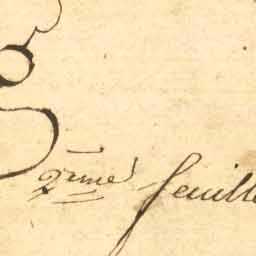 2ème feuille